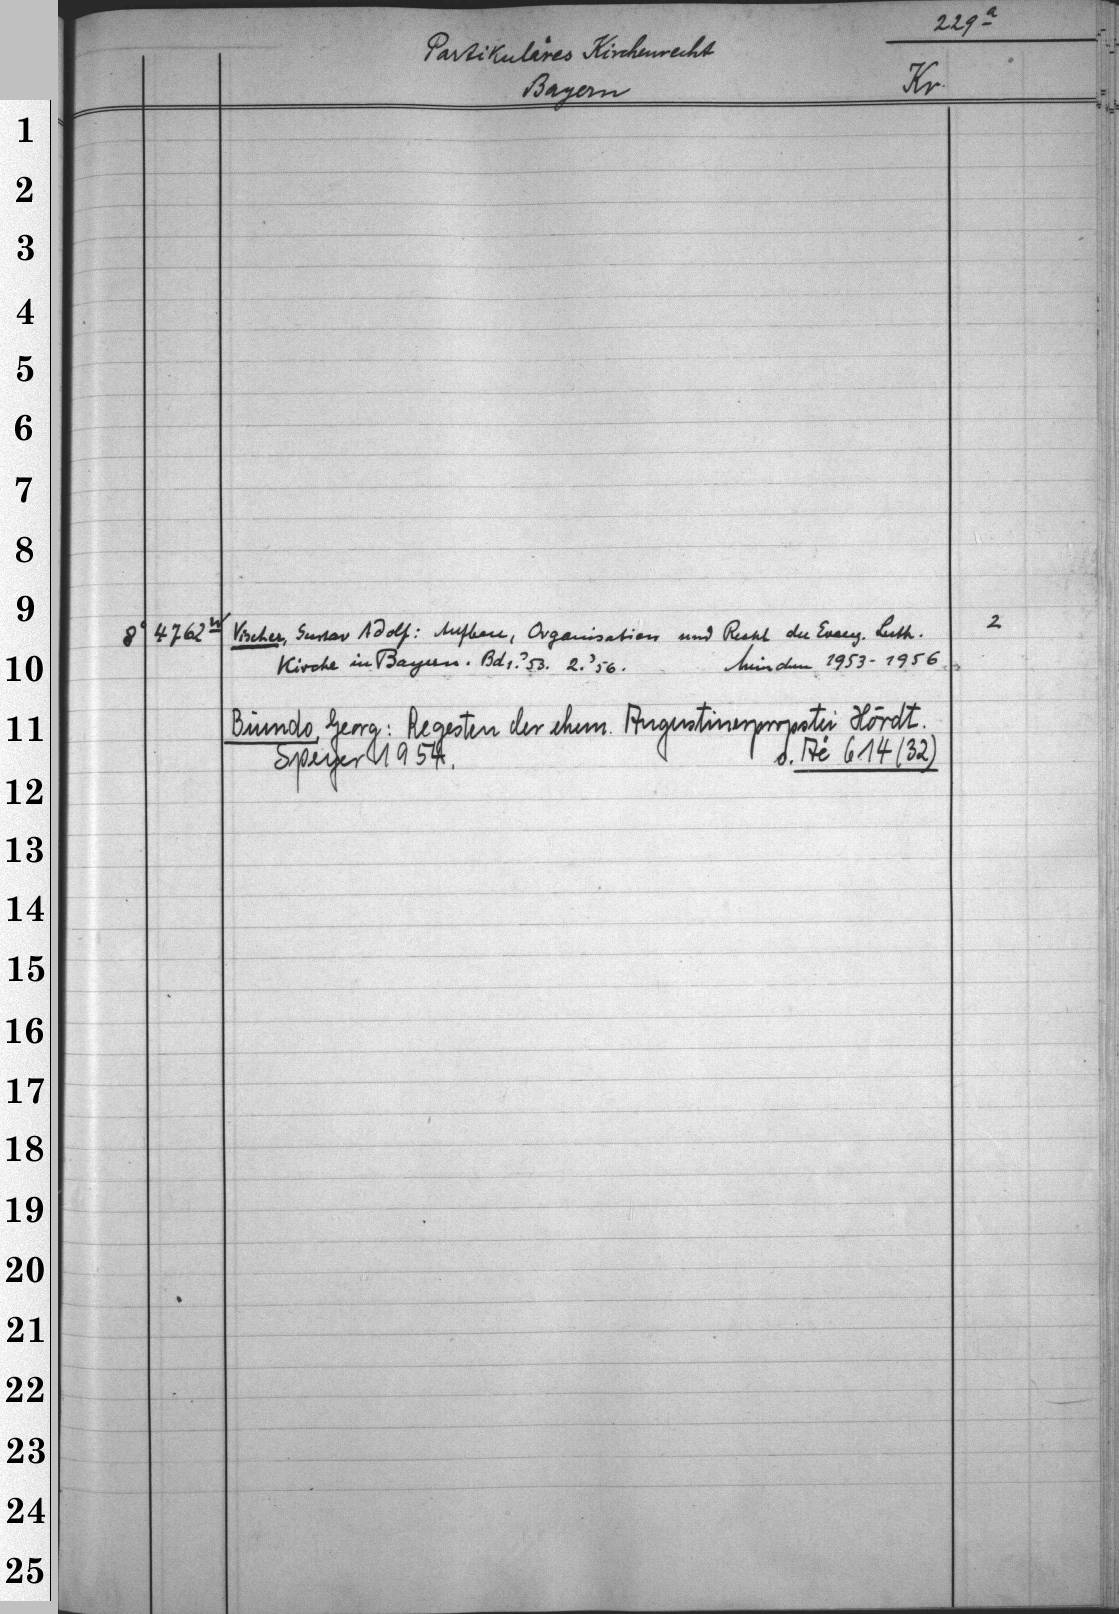 229a
Partikuläres Kirchenrecht
Bayern Kr.
1
2
3
4
5
6
7
8
9
8° 4762 Vischer, Gustav Adolf: Aufbau, Organisation und Recht der Evang. Luth. 2
10 Kirche in Bayern. Bd 1.² 53. 2.² 56. München 1953-1956
11 Biundo, Georg: Regesten der ehem. Augustinerpropstei Hördt.
Speyer 1954. s. Aé 614 (32)
12
13
14
15
16
17
18
19
20
21
22
23
24
25